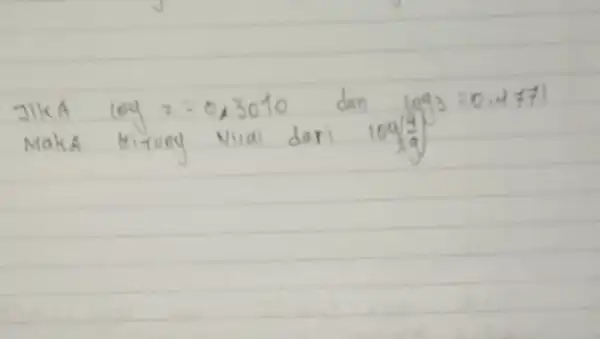 JIKA log 2 = 0,3010 dan log 3 = 0.4771
MaKA Hitung Nilai dari log(4/9)